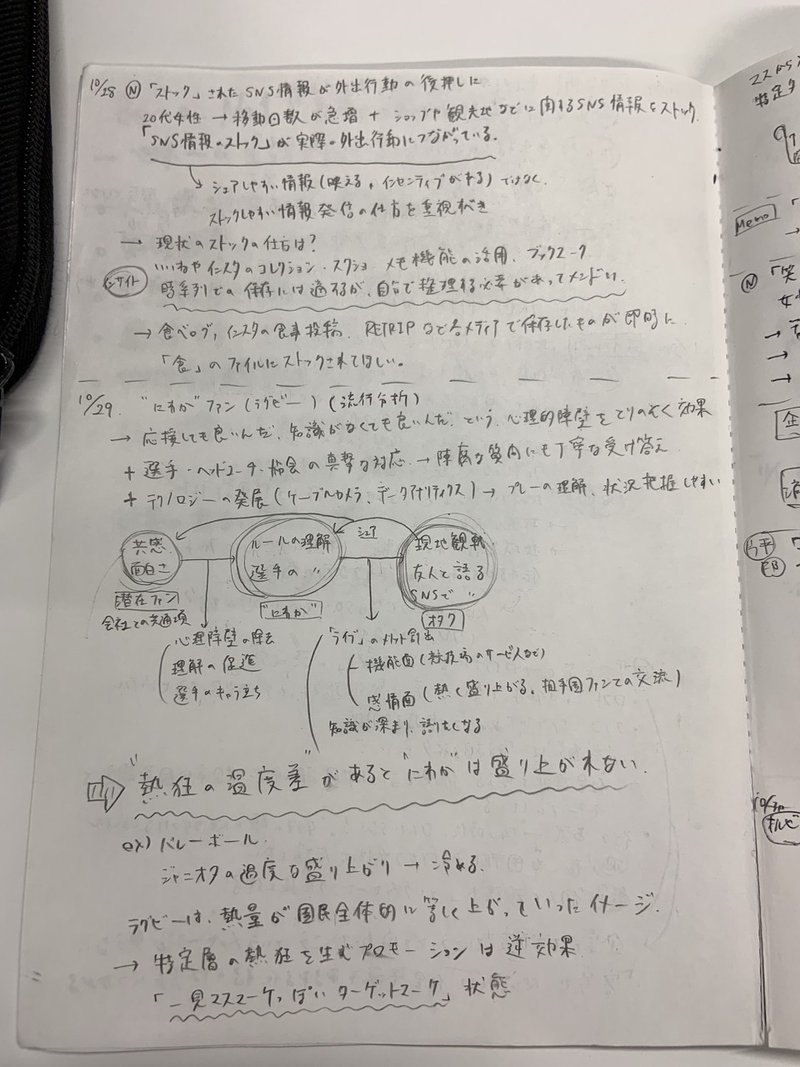 10/28 Ⓝ 「ストック」されたSNS情報が外出行動の後押しに
20代女性 → 移動回数が急増 + ショップや観光地などに関するSNS情報をストック.
「SNS情報のストック」が実際の外出行動につながっている.
シェアしやすい情報(映える, インセンティブがある)ではなく
ストックしやすい情報発信の仕方を重視すべき
→ 現状のストックの仕方は?
いいねやインスタのコレクション・スクショ メモ機能の活用、ブックマーク
インサイト 時系列での保存には適するが、自分で整理する必要があってメンドい.
→ 食べログ, インスタの食事投稿、RETRIPなど各メディアで保存したものが即時に
「食」のファイルにストックされてほしい。
10/29. "にわか"ファン(ラグビー) (流行分析)
→ 応援しても良いんだ、知識がなくても良いんだ、という、心理的障壁をとりのぞく効果
+ 選手・ヘッドコーチ・協会の真摯な対応. → 陳腐な質問にも丁寧な受け答え
+ テクノロジーの発展(ケーブルカメラ、データアナリティクス) → プレーの理解、状況把握しやすい
共感 面白さ
ルールの理解 選手の 〃
シェア
現地観戦 友人と語る SNSで 〃
潜在ファン
"にわか"
オタク
会社での共通項
心理障壁の除去
理解の促進
選手のキャラ立ち
「ライブ」のメリット創出
機能面(競技場のサービスなど)
感情面(熱く盛り上がる、相手国ファンとの交流)
知識が深まり、語りたくなる
⇨ "熱狂の温度差"があると"にわか"は盛り上がれない.
ex) バレーボール.
ジャニオタの過度な盛り上がり → 冷める.
ラグビーは、熱量が国民全体的に等しく上がっていったイメージ.
→ 特定層の熱狂を生むプロモーションは逆効果
「一見マスマーケっぽいターゲットマーケ」状態
マスから
特定タ
Memo
Ⓝ 「笑
女
→
→
→
企
10/30